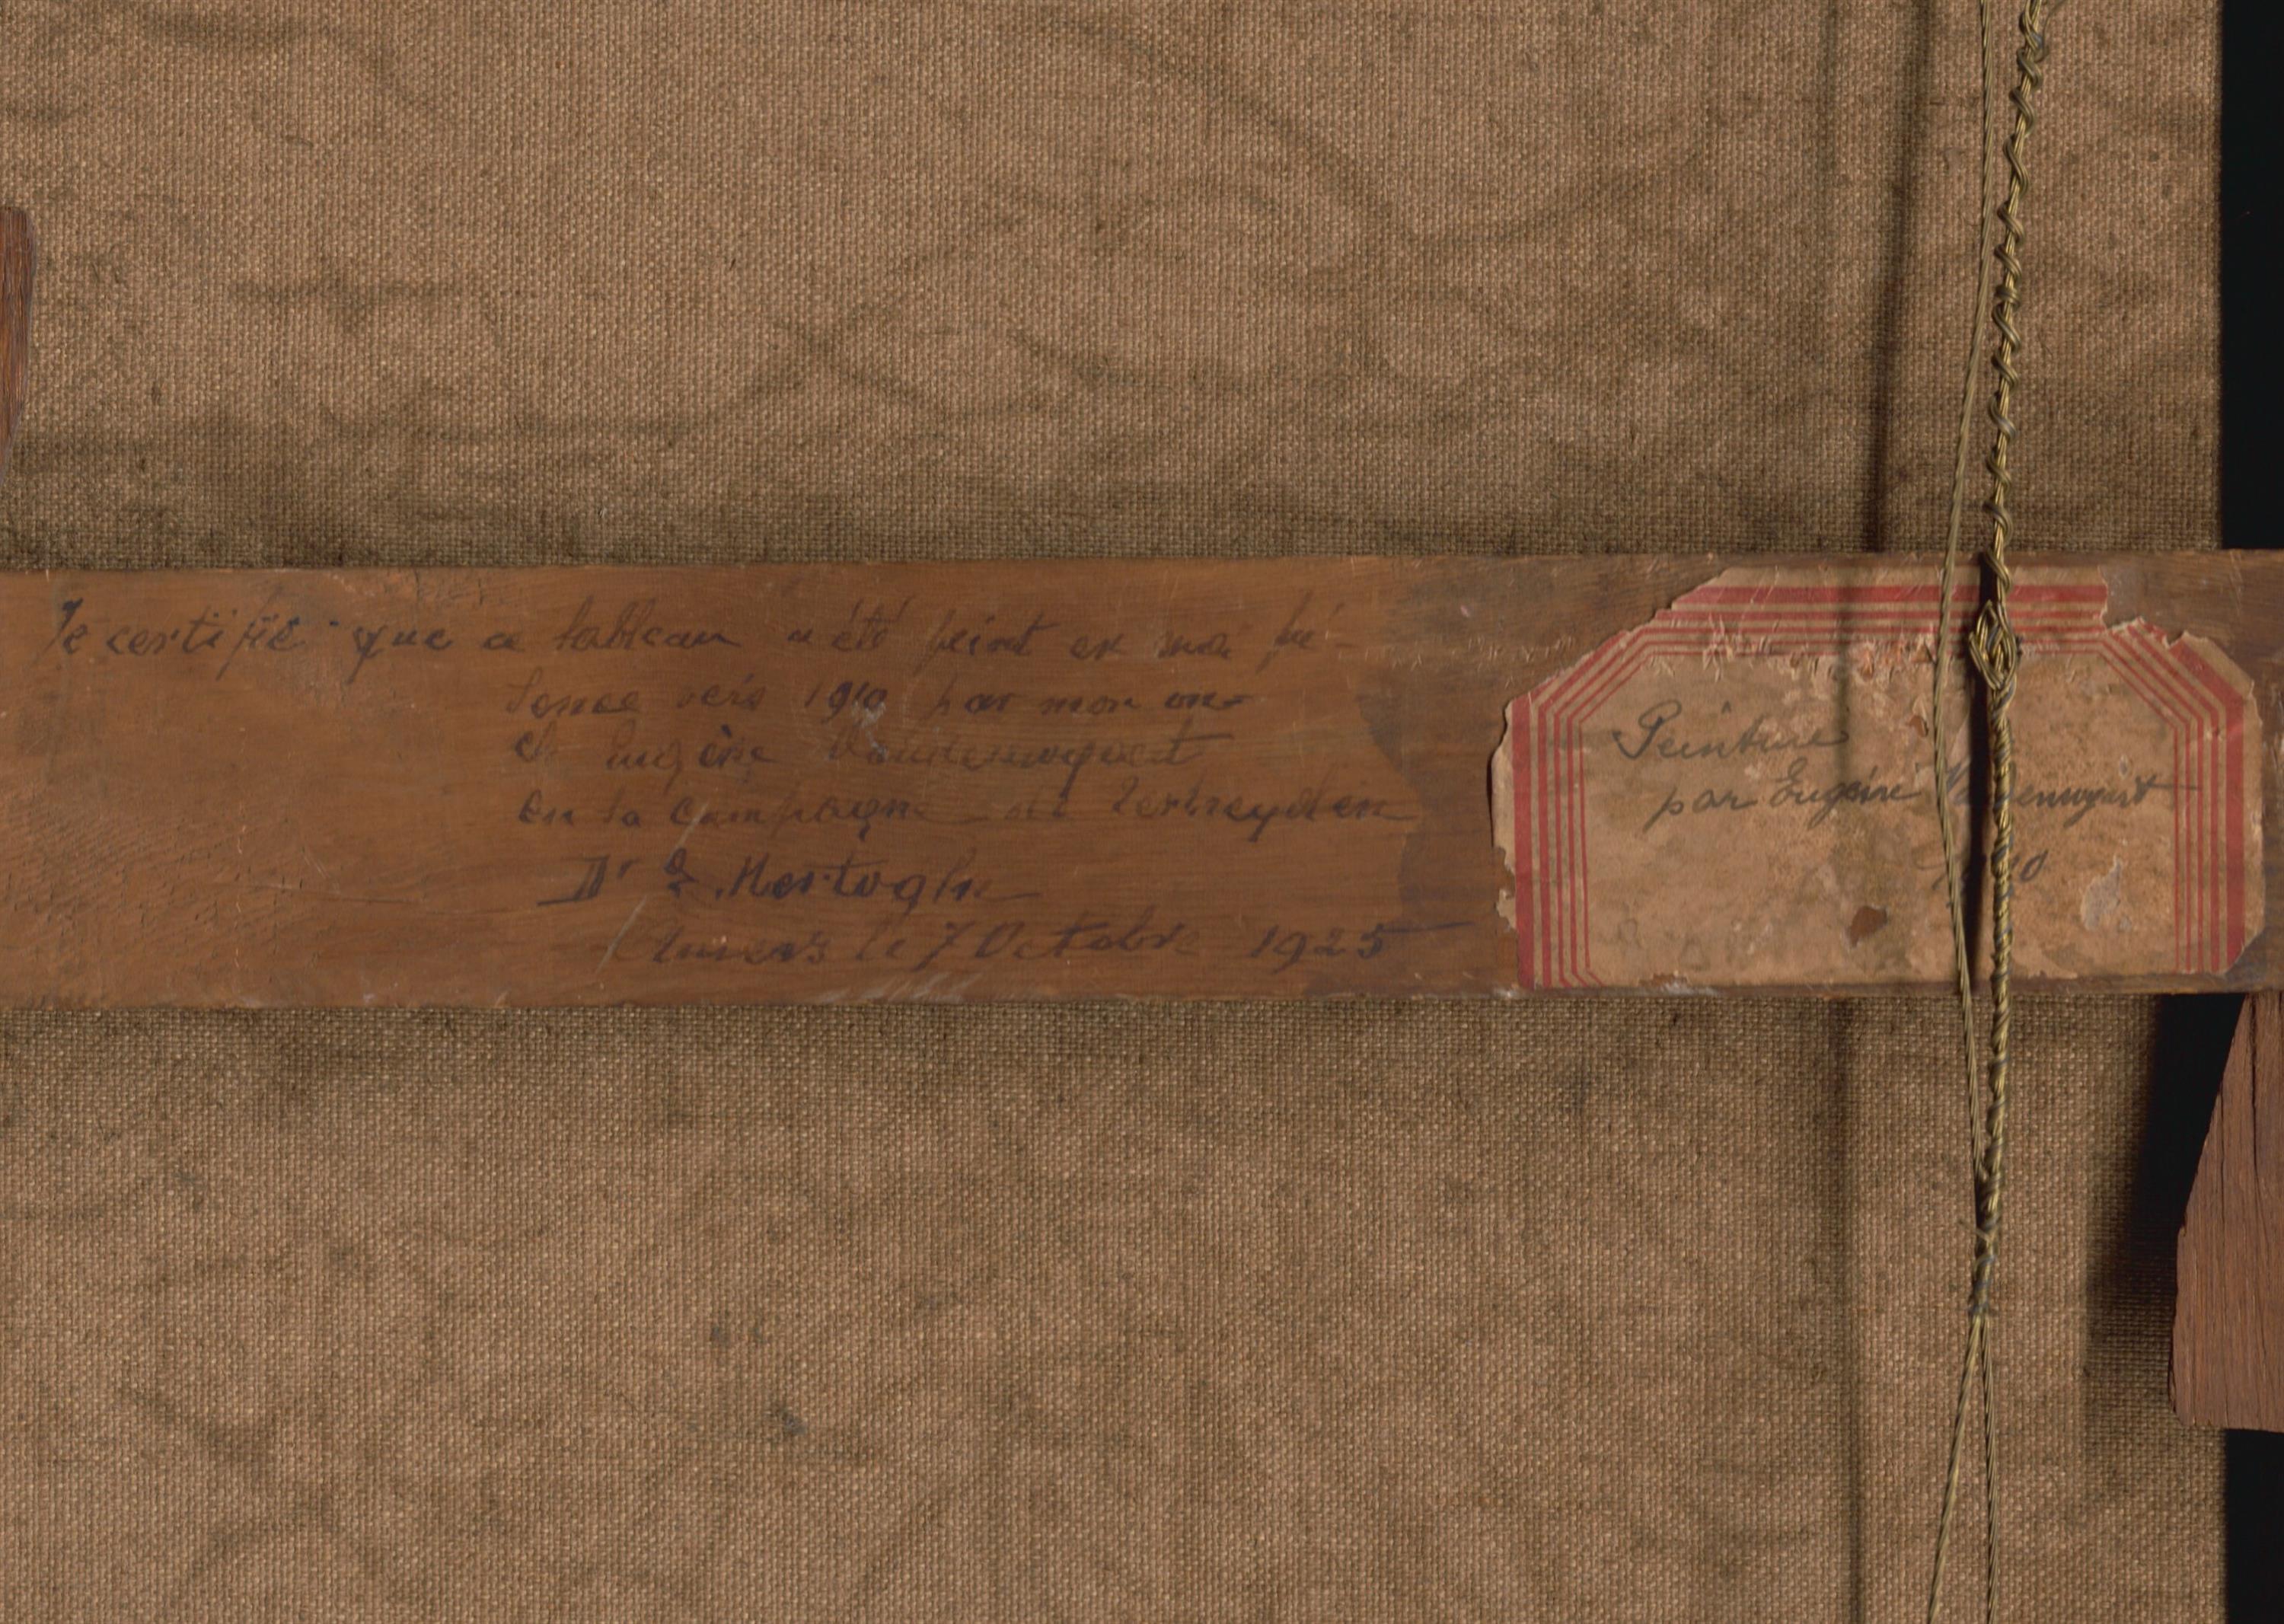 Je certifie que ce tableau a été peint en ma pré-
sence vers 1910 par mon on-
cle Eugène Vandennoyent
en sa campagne de
Dr E. Hertoghe
Anvers le 7 Octobre 1925
Peinture
par Eugène